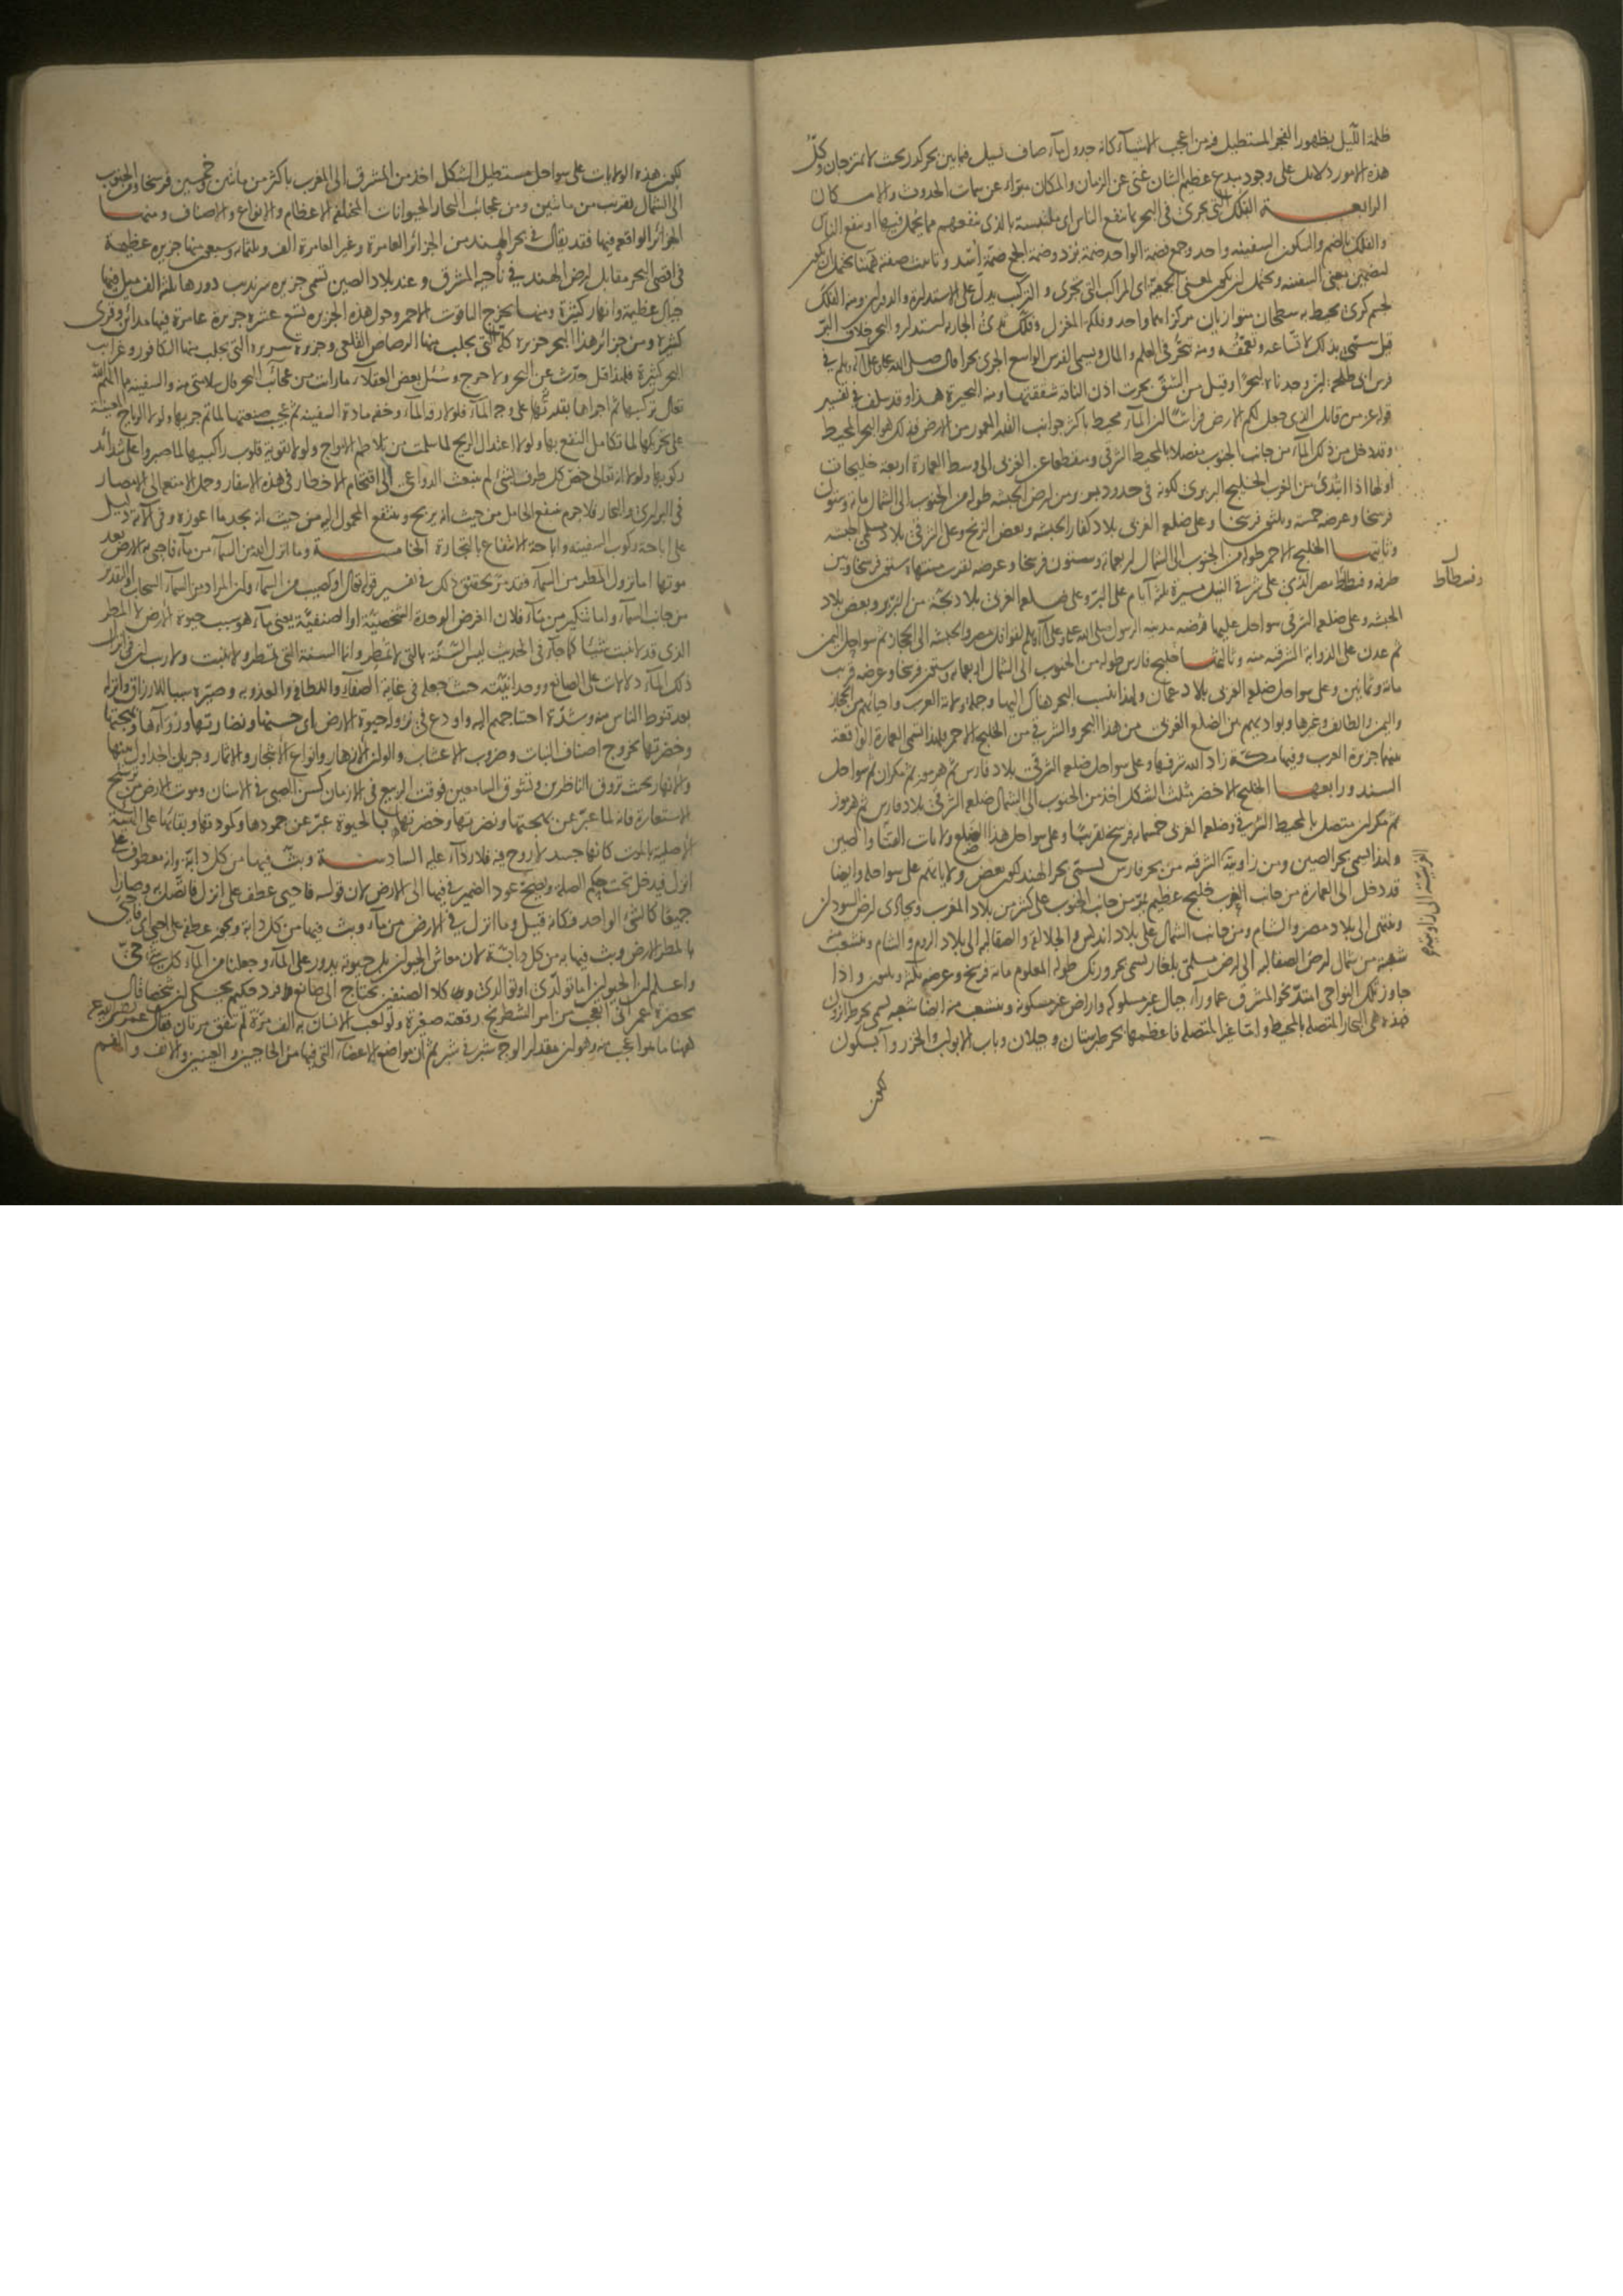 ظلمة الليل بظهور الفجر المستطيل فهو من اعجب الاشياء كانه جدول ماء صاف يسيل فيما بين بحر كدر بحيث لا يمتزجان وكل
هذه الامور دلائل على وجود مبدع عظيم الشان غنى عن الزمان والمكان مبراء عن سمات الحدوث والامكان
الرابعة الفلك التى تجرى فى البحر بما ينفع الناس اى ملتبسة بالذى ينفعهم مما يحمل فيها او ينفع الناس
والفلك بالضم والسكون السفينة واحد وجمع فضمة الواحد ضمة برد وضمة الجمع ضمة اسد وتانيث صفته ههنا يحتمل ان يكون
لتضمين معنى السفينة ويحتمل ان يكون لمعنى الجمعية اى المراكب التى تجرى والتركيب يدل على الاستدارة والدوران ومنه الفلك
لجسم كرى يحيط به سطحان متوازيان مركزاهما واحد وفلكة المغزل وفلك ثدى الجارية استدار والبحر خلاف البر
قيل سمى بذلك لاتساعه وتعمقه ومنه تبحر فى العلم والمال ويسمى الفرس الواسع الجرى بحرا قال صلى الله عليه وعلى آله وسلم فى
فرس ابى طلحة ان وجدناه لبحرا وقيل من الشق بحرت اذن الناقة شققتها ومنه البحيرة هذا وقد سلف فى تفسير
قوله عز من قائل الذى جعل لكم الارض فراشا ان الماء محيط باكثر جوانب القدر المعمور من الارض فذلك هو البحر المحيط
وقد دخل من ذلك الماء من جانب الجنوب متصلا بالمحيط الشرقى ومنقطعا عن الغربى الى وسط العمارة اربعة خليجات
اولها اذا ابتدئ من المغرب الخليج البربرى لكونه فى حدود بربر من ارض الحبشة طوله من الجنوب الى الشمال مائة وستون
فرسخا وعرضه خمسة وثلثون فرسخا وعلى ضلعه الغربى بلاد كفار الحبشة وبعض الزنج وعلى الشرقى بلاد مسلمى الحبشة
وثانيها الخليج الاحمر طوله من الجنوب الى الشمال اربعمائة وستون فرسخا وعرضه بقرب منتهاه ستون فرسخا وبين
طرفه وفسطاط مصر الذى على شرقى النيل مسيرة ثلثة ايام على البر وعلى ضلعه الغربى بلاد بجة من البربر وبعض بلاد
الحبشة وعلى ضلعه الشرقى سواحل عليها فرضة مدينة الرسول صلى الله عليه وعلى آله وسلم لقوافل مصر والحبشة الى الحجاز ثم سواحل اليمن
ثم عدن على الذوابة الشرقية منه وثالثها خليج فارس طوله من الجنوب الى الشمال اربعمائة وستون فرسخا وعرضه قريب
مائة وثمانين وعلى سواحل ضلعه الغربى بلاد عمان ولهذا ينسب البحر هناك اليها وجملة ولاية العرب واحيائهم من الحجاز
واليمن والطائف وغيرها وبواديهم بين الضلع الغربى من هذا البحر والشرقى من الخليج الاحمر فلهذا تسمى العمارة الواقعة
بينهما جزيرة العرب وفيها مكة زاد الله شرفها وعلى سواحل ضلعه الشرقى بلاد فارس ثم هرموز ثم مكران ثم سواحل
السند ورابعها الخليج الاخضر مثلث الشكل آخذ من الجنوب الى الشمال ضلعه الشرقى بلاد فارس ثم هرموز
ثم مكران متصل بالمحيط الشرقى وضلعه الغربى خمسمائة فرسخ تقريبا وعلى سواحل هذا الضلع ولايات الصين
ولهذا يسمى بحر الصين ومن زاويته الشرقية من بحر فارس يسمى بحر الهند لكون بعض ولاياتهم على سواحله وايضا
قد دخل الى العمارة من جانب الغرب خليج عظيم يمر من جانب الجنوب على كثير من بلاد المغرب ويحاذى ارض السودان
وينتهى الى بلاد مصر والشام ومن جانب الشمال على بلاد اندلس والجلالقة والصقالبة الى بلاد الروم والشام وينشعب منه
شعبة من شمال ارض الصقالبة الى ارض مسلمى بلغار يسمى بحر ورنك طوله المعلوم مائة فرسخ وعرضه ثلثة وثلثون واذا
جاوز تلك النواحى امتد نحو المشرق عما وراء جبال غير مسلوكة واراض غير مسكونة وينشعب منه ايضا شعبة تسمى بحر طرابزون
فهذه هى البحار المتصلة بالمحيط واما غير المتصلة فاعظمها بحر طبرستان وجيلان وباب الابواب والخزر وآبسكون
لكون
وفسطاط
الغربية الى زاويته
لكون هذه الولايات على سواحله مستطيل الشكل آخذ من المشرق الى المغرب باكثر من مائتين وخمسين فرسخا ومن الجنوب
الى الشمال بقريب من مائتين ومن عجائب البحار الحيوانات المختلفة الاعظام والانواع والاصناف ومنها
الجزائر الواقعة فيها فقد يقال فى بحر الهند من الجزائر العامرة وغير العامرة الف وثلثمائة وسبعون منها جزيرة عظيمة
فى اقصى البحر مقابل ارض الهند فى ناحية المشرق وعند بلاد الصين تسمى جزيرة سرنديب دورها ثلثة آلاف ميل فيها
جبال عظيمة وانهار كثيرة ومنها يخرج الياقوت الاحمر وحول هذه الجزيرة تسع عشرة جزيرة عامرة فيها مدائن وقرى
كثيرة ومن جزائر هذا البحر جزيرة كلة التى يجلب منها الرصاص القلعى وجزيرة سريرة التى يجلب منها الكافور وغرائب
البحر كثيرة فلهذا قيل حدث عن البحر ولا حرج وسئل بعض العقلاء ما رايت من عجائب البحر قال سلامتى منه والسفينة مما الهم الله
تعالى تركيبها ثم اجراها بقدرته على وجه الماء فلولا رقة الماء وخفة مادة السفينة ثم عجيب صنعتها لما تم جريها ولولا الرياح المعينة
على تحريكها لما تكامل النفع بها ولولا اعتدال الريح لما سلمت من تلاطم الامواج ولولا تقوية قلوب راكبيها لما صبروا على شدائد
ركوبها ولولا انه تعالى خص كل طرف بشئ لم تنبعث الدواعى الى اقتحام الاخطار فى هذه الاسفار وحمل الامتعة الى الامصار
فى البرارى والبحار فلا جرم ينتفع الحامل من حيث انه يربح وينتفع المحمول اليه من حيث انه يجد ما اعوزه وفى الآية دليل
على اباحة ركوب السفينة واباحة الانتفاع بالتجارة الخامسة وما انزل الله من السماء من ماء فاحيى به الارض بعد
موتها اما نزول المطر من السماء فقد مر تحقيق ذلك فى تفسير قوله تعالى او كصيب من السماء ولكن المراد من السماء السحاب والتقدير
من جانب السماء واما تنكير من ماء فلان الغرض الوحدة الشخصية او الصنفية يعنى ماء هو سبب حيوة الارض لا المطر
الذى قد لا ينبت شيئا كما جاء فى الحديث ليس السنة بالتى لا تمطر وانما السنة التى تمطر ولا تنبت ولا ريب ان فى انزال
ذلك الماء دلالات على الصانع ووحدانيته حيث جعله فى غاية الصفاء واللطافة والعذوبة وصيره سببا للارزاق وانزله
بعد قنوط الناس منه وشدة احتياجهم اليه واودع فى نزوله حيوة الارض اى حسنها ونضارتها ورواءها وبهجتها
وخضرتها بخروج اصناف النبات وضروب الاعشاب والوان الازهار وانواع الاشجار والاثمار وجريان الجداول بينها
والانهار بحيث تروق الناظرين وتشوق السامعين فوقت الربيع فى الازمان كسن الصبى فى الانسان وموت الارض ترشيح
الاستعارة فانه لما عبر عن بهجتها ونضرتها وخضرتها بالحيوة عبر عن جمودها وكمودتها وبقائها على الهيئة
الاصلية بالموت كانها جسد لا روح فيه فلا رداء عليه السادسة وبث فيها من كل دابة وانه معطوف على
انزل فيدخل تحت حكم الصلة ويصح عود الضمير فى فيها الى الارض لان قوله فاحيى عطف على انزل فاتصل به وصارا
جميعا كالشئ الواحد فكانه قيل وما انزل فى الارض من ماء وبث فيها من كل دابة ويجوز عطفه على احيى اى فاحيى
بالمطر الارض وبث فيها به من كل دابة لان معاش الحيوان بل حيوته يدور على الماء وجعلنا من الماء كل شئ حى
واعلم ان الحيوان اما تولدى او توالدى وكلا الصنفين يحتاج الى صانع فرد حكيم يحكى ان شخصا قال
بحضرة عمر انى اتعجب من امر الشطرنج رقعته صغيرة ولو لعب الانسان به الف مرة لم تتفق مرتان فقال عمر رضى الله عنه
ههنا ما هو اعجب منه وهو ان مقدار الوجه شبر فى شبر ثم ان مواضع الاعضاء التى فيها من الحاجبين والعينين والانف والفم